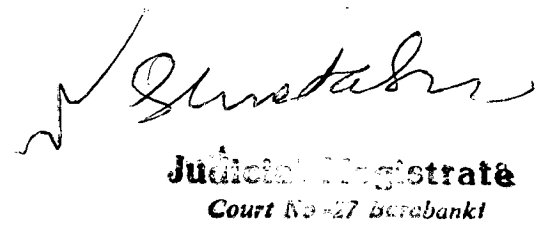 Judicial Magistrate
Court No -27 Barabanki